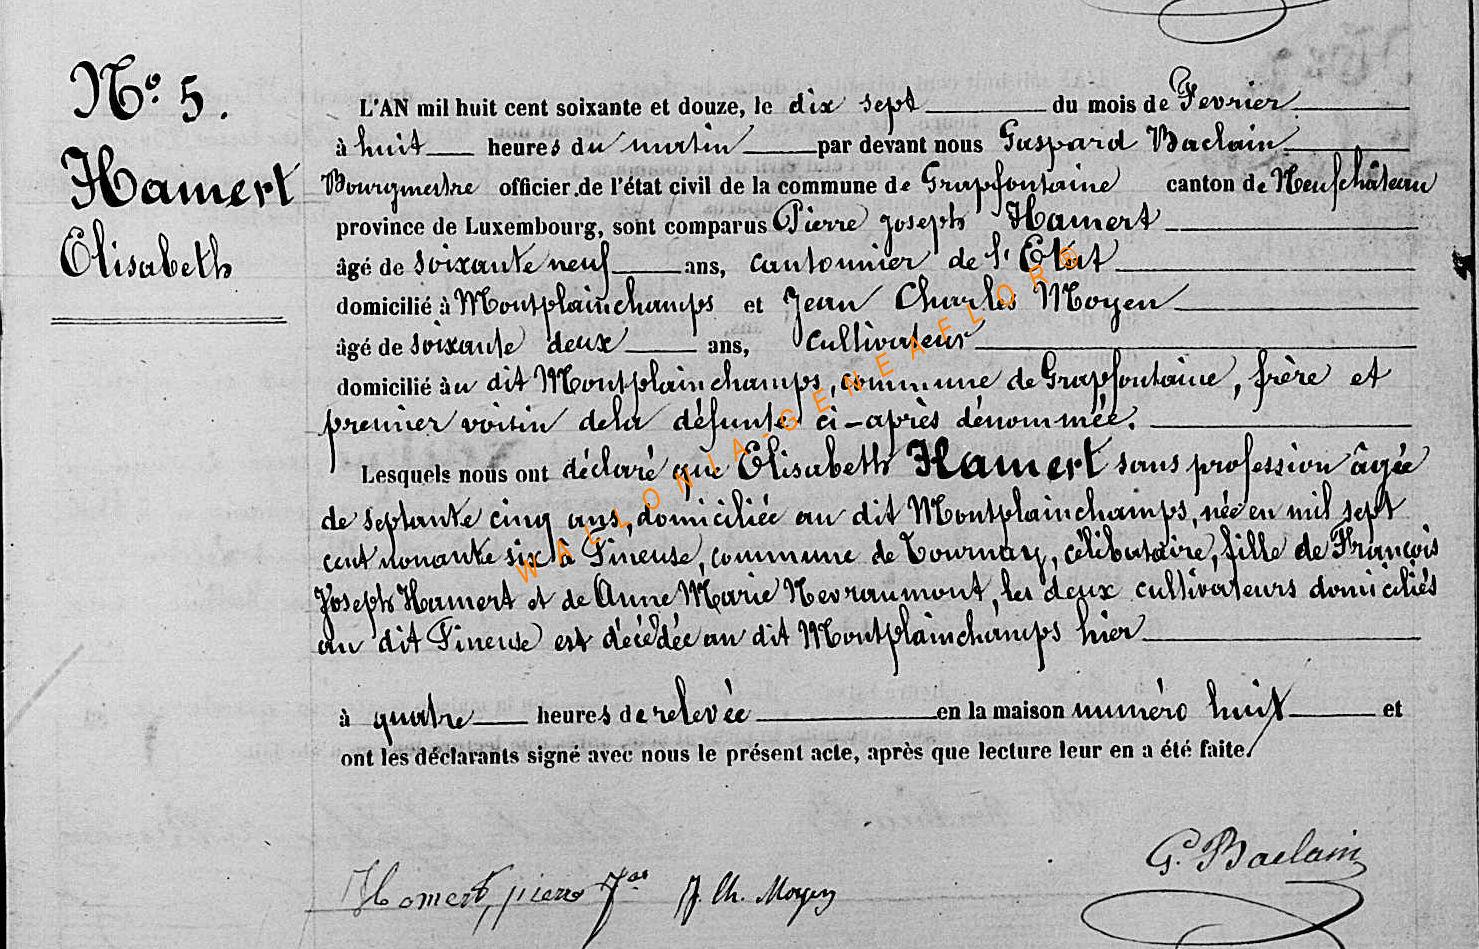 N° 5.
Hamert
Elisabeth
L'AN mil huit cent soixante et douze, le dix sept du mois de Fevrier
à huit heures du matin par devant nous Gaspard Baclain
Bourgmestre officier de l'état civil de la commune de Grapfontaine canton de Neufchâteau
province de Luxembourg, sont comparus Pierre Joseph Hamert
âgé de soixante neuf ans, cantonnier de l'Etat
domicilié à Montplainchamps et Jean Charles Moyen
âgé de soixante deux ans, cultivateur
domicilié au dit Montplainchamps, commune de Grapfontaine, frère et
premier voisin dela défunte ci-après dénommée.
Lesquels nous ont déclaré que Elisabeth Hamert sans profession âgée
de septante cinq ans, domiciliée au dit Montplainchamps, née en mil sept
cent nonante six à Fineuse, commune de Tournay, célibataire, fille de François
Joseph Hamert et de Anne Marie Nevraumont, les deux cultivateurs domiciliés
au dit Fineuse est décédée au dit Montplainchamps hier
à quatre heures de relevée en la maison numéro huit et
ont les déclarants signé avec nous le présent acte, après que lecture leur en a été faite.
G. Baclain
Hamert, pierre Jos J. Ch. Moyen
WALLONIA-GENEAFLOR®